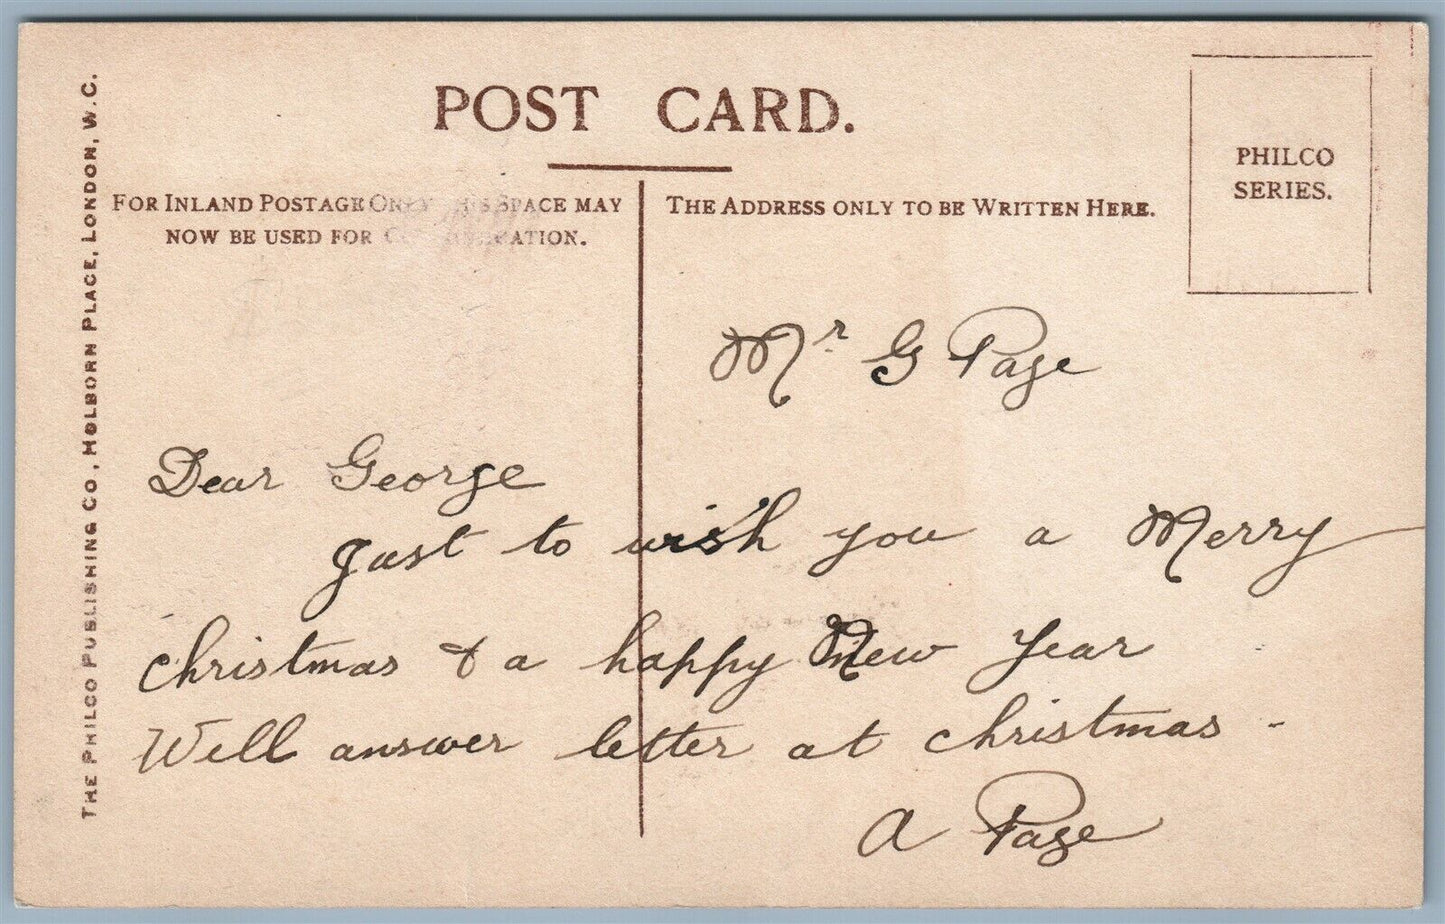 POST CARD.
PHILCO
SERIES.
FOR INLAND POSTAGE ONLY THIS SPACE MAY
NOW BE USED FOR COMMUNICATION.
THE ADDRESS ONLY TO BE WRITTEN HERE.
THE PHILCO PUBLISHING CO., HOLBORN PLACE, LONDON, W.C.
Mr G Page
Dear George
Just to wish you a Merry
christmas & a happy New Year
Well answer letter at christmas -
A Page